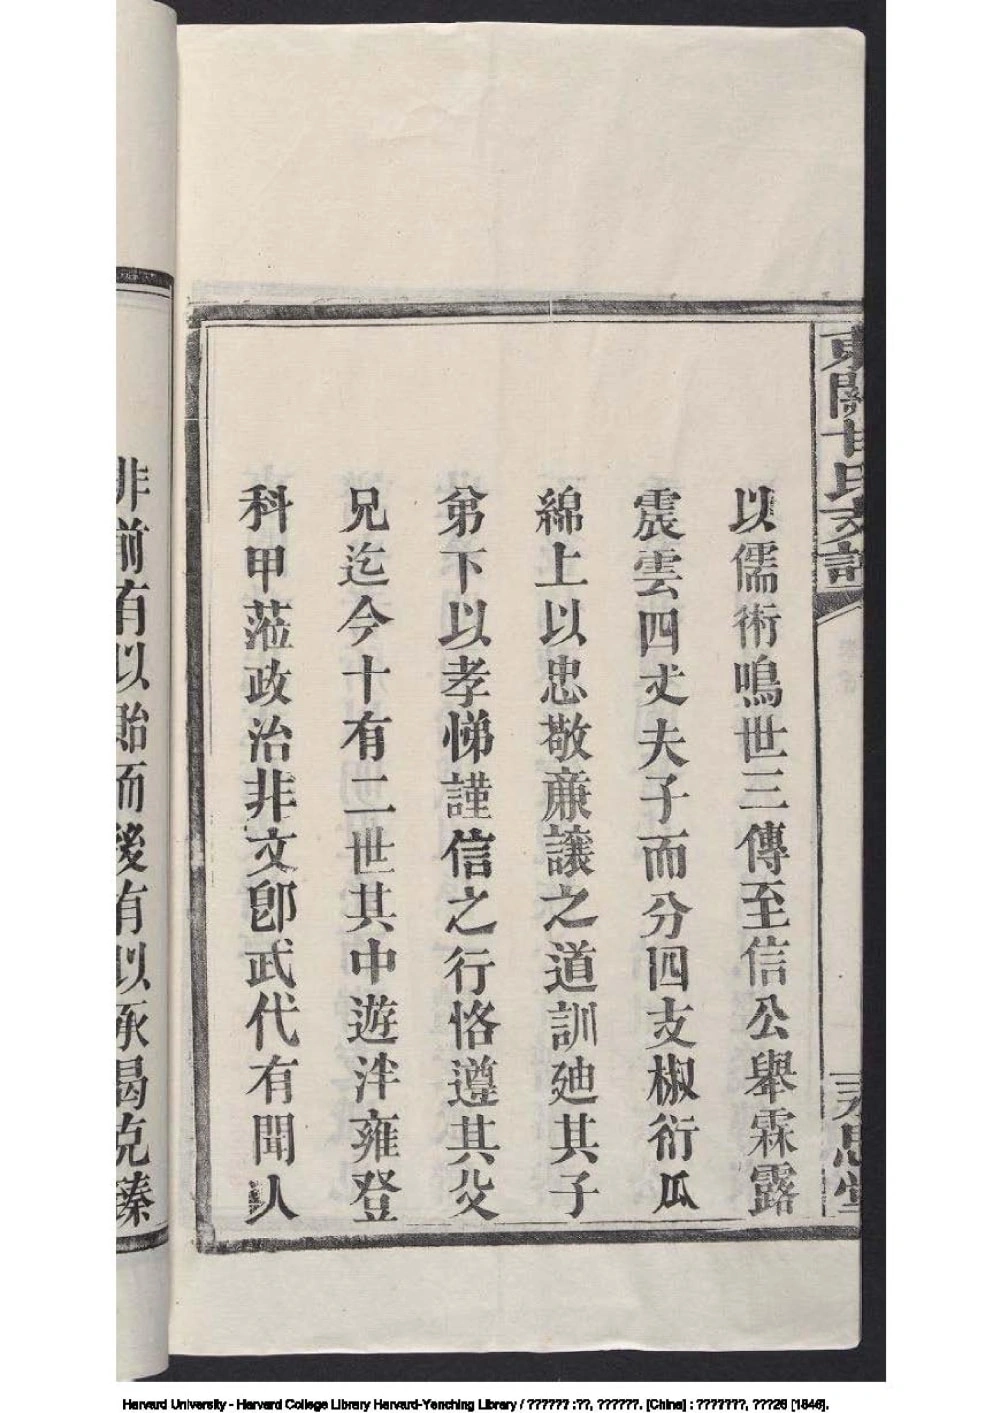 東關甘氏支譜
永思堂
以儒術鳴世三傳至信公舉霖露
震雲四丈夫子而分四支椒衍瓜
綿上以忠敬廉讓之道訓廸其子
弟下以孝悌謹信之行恪遵其父
兄迄今十有二世其中遊泮雍登
科甲蒞政治非文卽武代有聞人
非前有以貽而後有以承曷克臻
Harvard University - Harvard College Library Harvard-Yenching Library / ?????? :??, ??????. [China] : ???????, ???26 [1846].